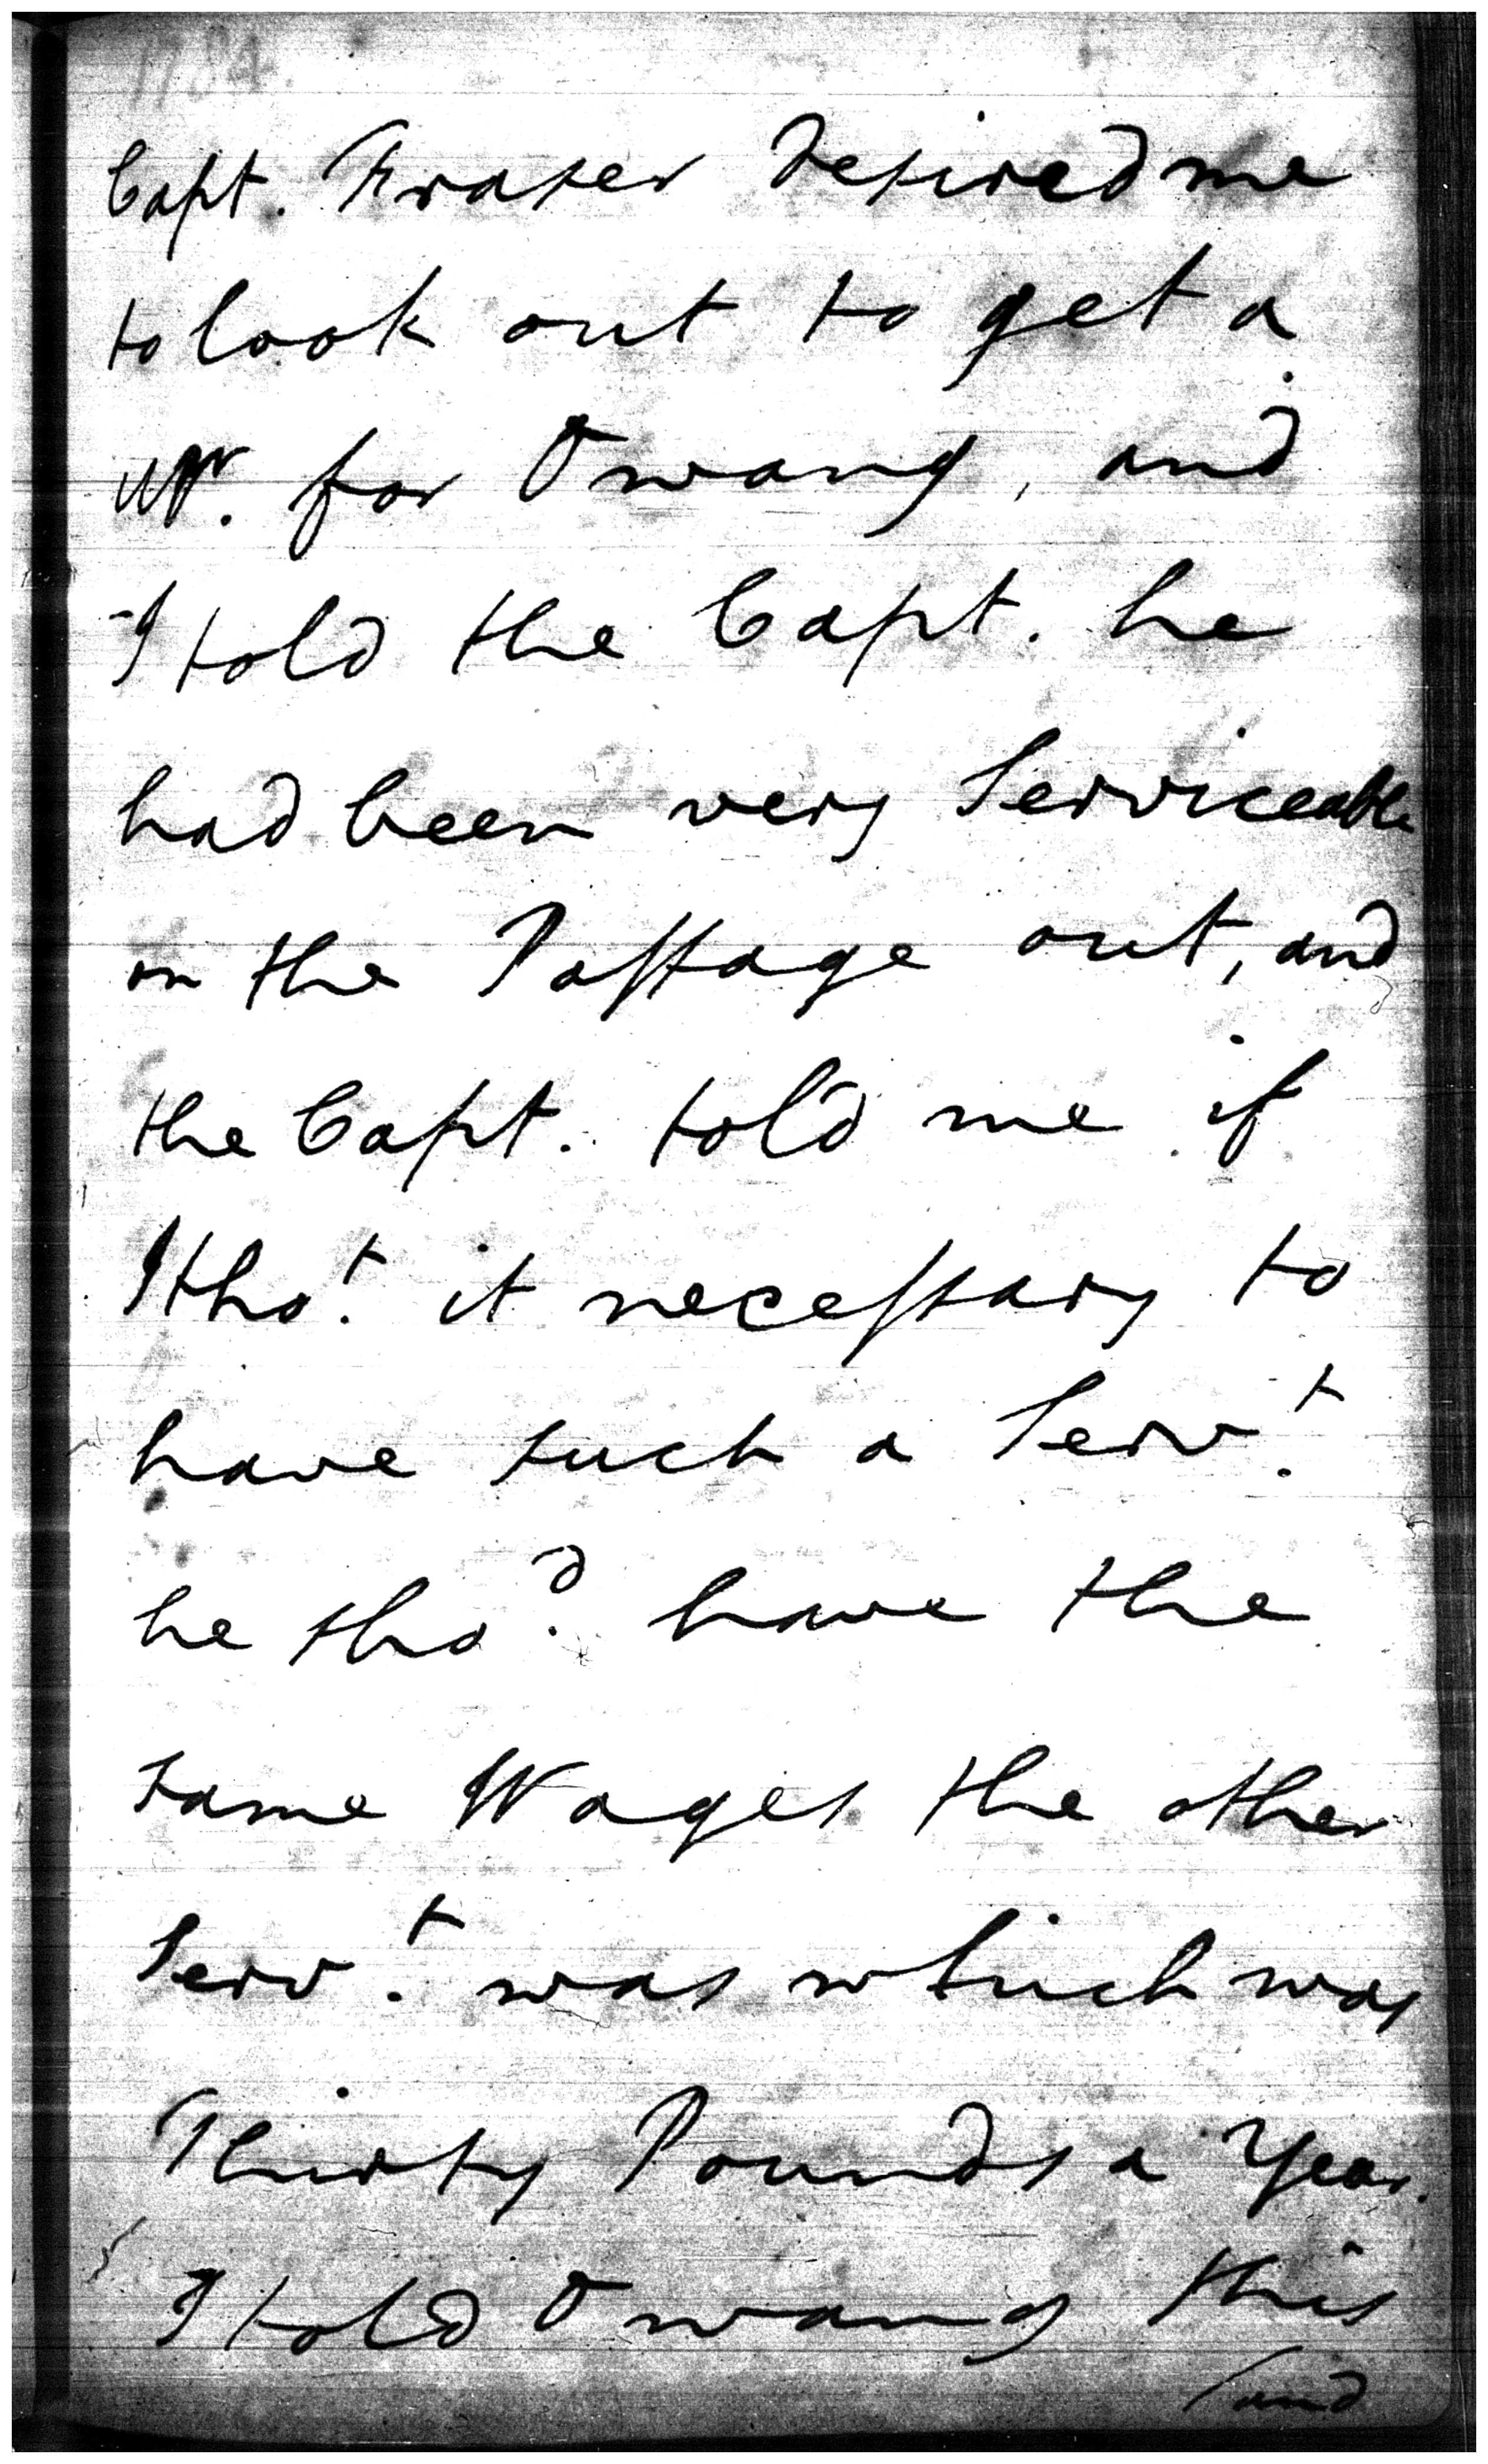 1784.
Capt. Fraser desired me
to look out to get a
for Owang, and
I told the Capt. he
had been very Serviceable
on the Passage out, and
the Capt. told me if
I tho.t it necessary to
have such a Serv.t
he sho.d have the
same Wages the other
Serv.t was which was
Thirty Pounds a Year.
I told Owang this
/and